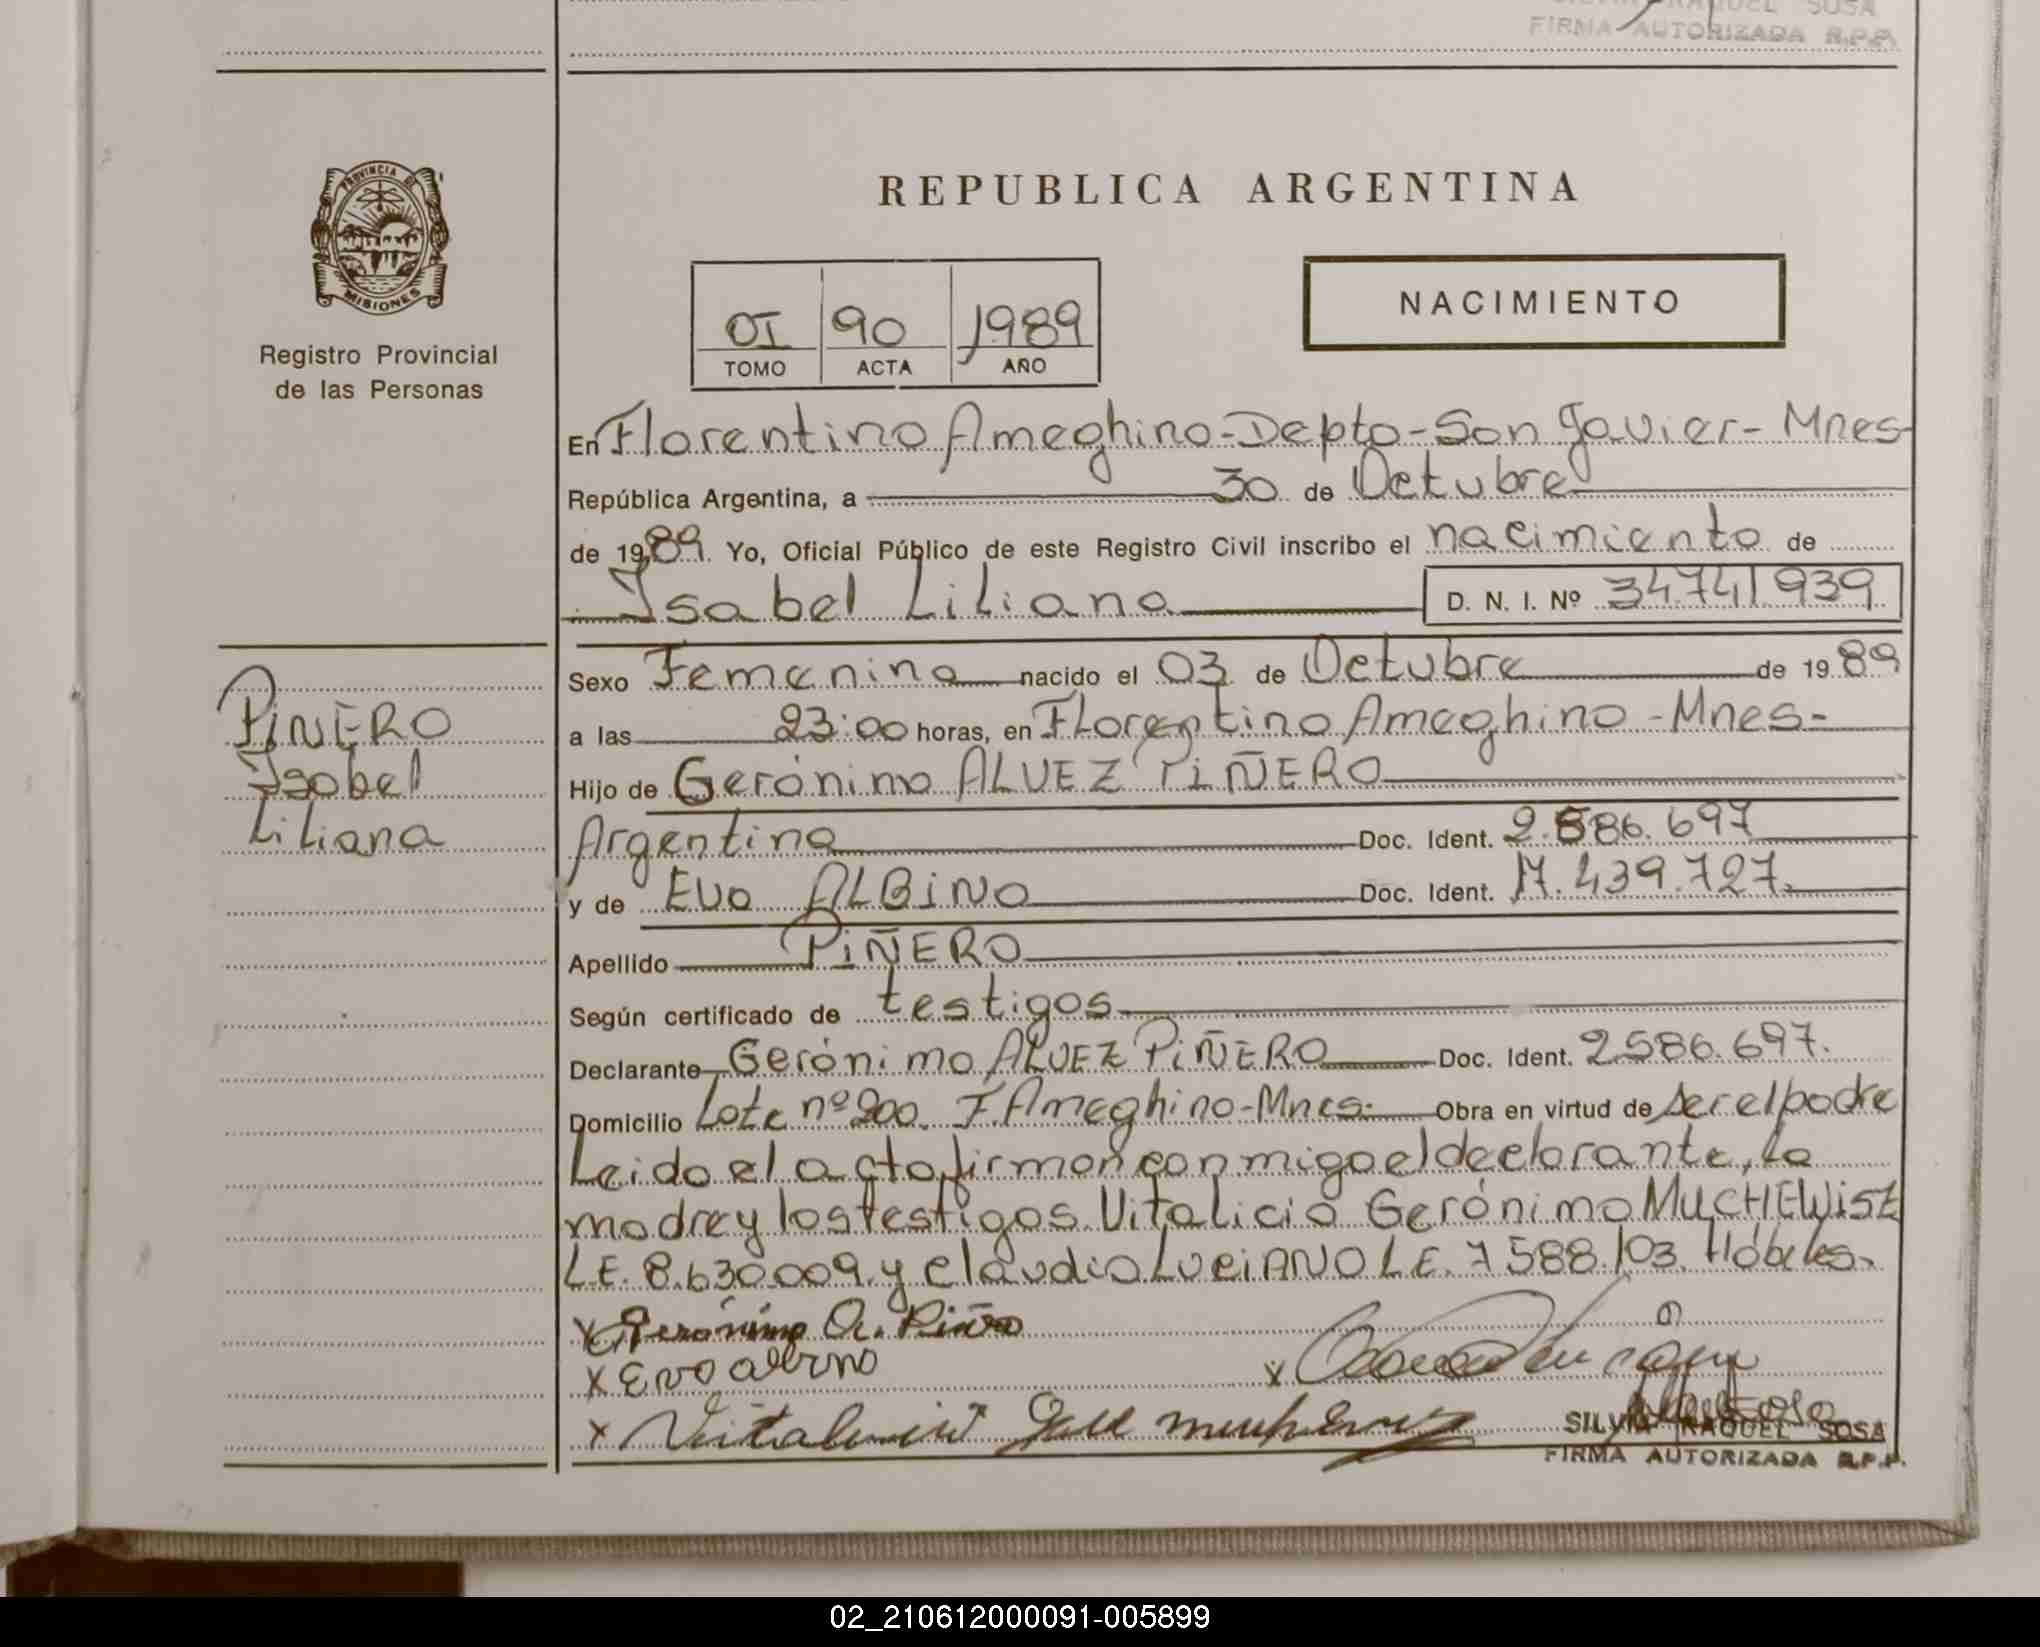 SILVIA RAQUEL SOSA
FIRMA AUTORIZADA R.P.P.
PROVINCIA DE
MISIONES
Registro Provincial
de las Personas
REPUBLICA ARGENTINA
OI 90 1989
TOMO ACTA AÑO
NACIMIENTO
En Florentino Ameghino-Depto-San Javier-Mnes-
República Argentina, a 30 de Octubre
de 1989. Yo, Oficial Público de este Registro Civil inscribo el nacimiento de
Isabel Liliana D. N. I. Nº 34.741.939
PIÑERO
Isabel
Liliana
Sexo Femenino nacido el 03 de Octubre de 1989
a las 23:00 horas, en Florentino Ameghino-Mnes-
Hijo de Gerónimo ALVEZ PIÑERO
Argentina Doc. Ident. 2.586.697
y de Eva ALBINO Doc. Ident. M.439.727.
Apellido PIÑERO
Según certificado de testigos
Declarante Gerónimo ALVEZ PIÑERO Doc. Ident. 2586.697.
Domicilio Lote nº200. F. Ameghino-Mnes. Obra en virtud de ser el padre
Leido el acta, firman conmigo el declarante, la
madre y los testigos Vitalicio Gerónimo MUCHEWISZ
L.E. 8.630.009. y Claudio LUCIANO L.E. 7588.103. Hábiles.
x Gerónimo A. Piño
x Eva albino
x
x
SILVIA RAQUEL SOSA
FIRMA AUTORIZADA R.P.P.
02_210612000091-005899